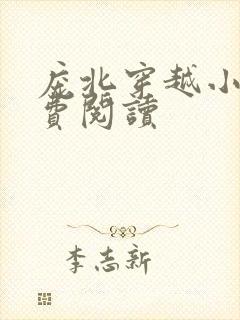 庇北穿越小
費閱讀
李志新